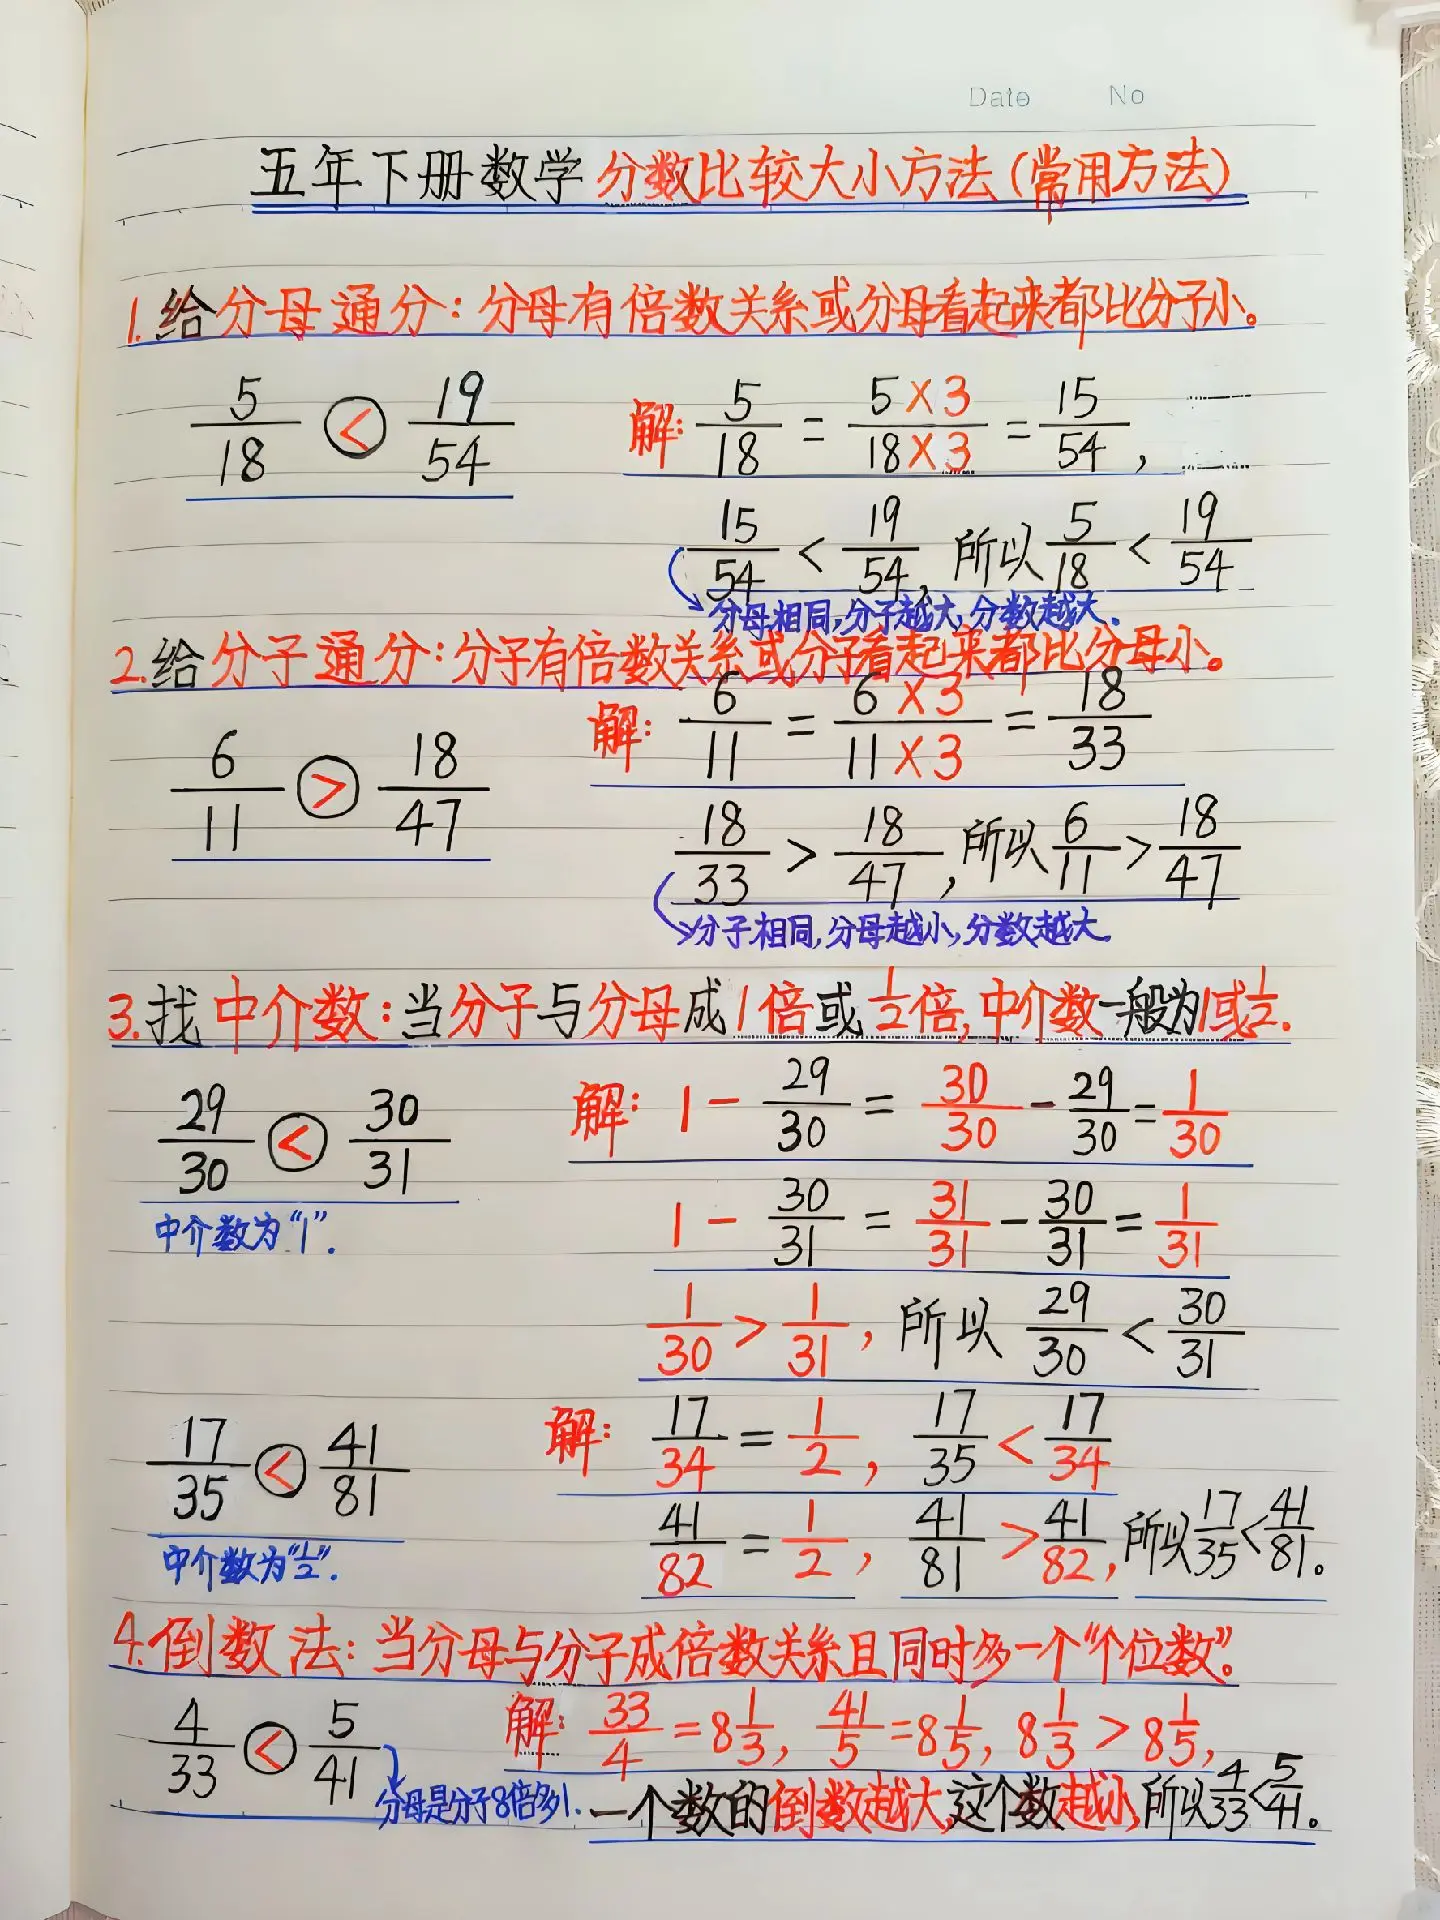 Date No
五年下册数学 分数比较大小方法(常用方法)
1.给分母通分:分母有倍数关系或分母看起来都比分子小。
5/18 < 19/54 解: 5/18 = 5×3/18×3 = 15/54,
15/54 < 19/54, 所以 5/18 < 19/54
分母相同,分子越大,分数越大.
2.给分子通分:分子有倍数关系或分子看起来都比分母小。
6/11 > 18/47 解: 6/11 = 6×3/11×3 = 18/33
18/33 > 18/47, 所以 6/11 > 18/47
分子相同,分母越小,分数越大.
3.找中介数:当分子与分母成1倍或1/2倍,中介数一般为1或1/2.
29/30 < 30/31 解: 1 - 29/30 = 30/30 - 29/30 = 1/30
中介数为"1".
1 - 30/31 = 31/31 - 30/31 = 1/31
1/30 > 1/31, 所以 29/30 < 30/31
17/35 < 41/81 解: 17/34 = 1/2, 17/35 < 17/34
中介数为"1/2".
41/82 = 1/2, 41/81 > 41/82, 所以 17/35 < 41/81。
4.倒数法:当分母与分子成倍数关系且同时多一个"个位数"。
4/33 < 5/41 解: 33/4 = 8 1/3, 41/5 = 8 1/5, 8 1/3 > 8 1/5,
分母是分子8倍多1.
一个数的倒数越大,这个数越小,所以 4/33 < 5/41。